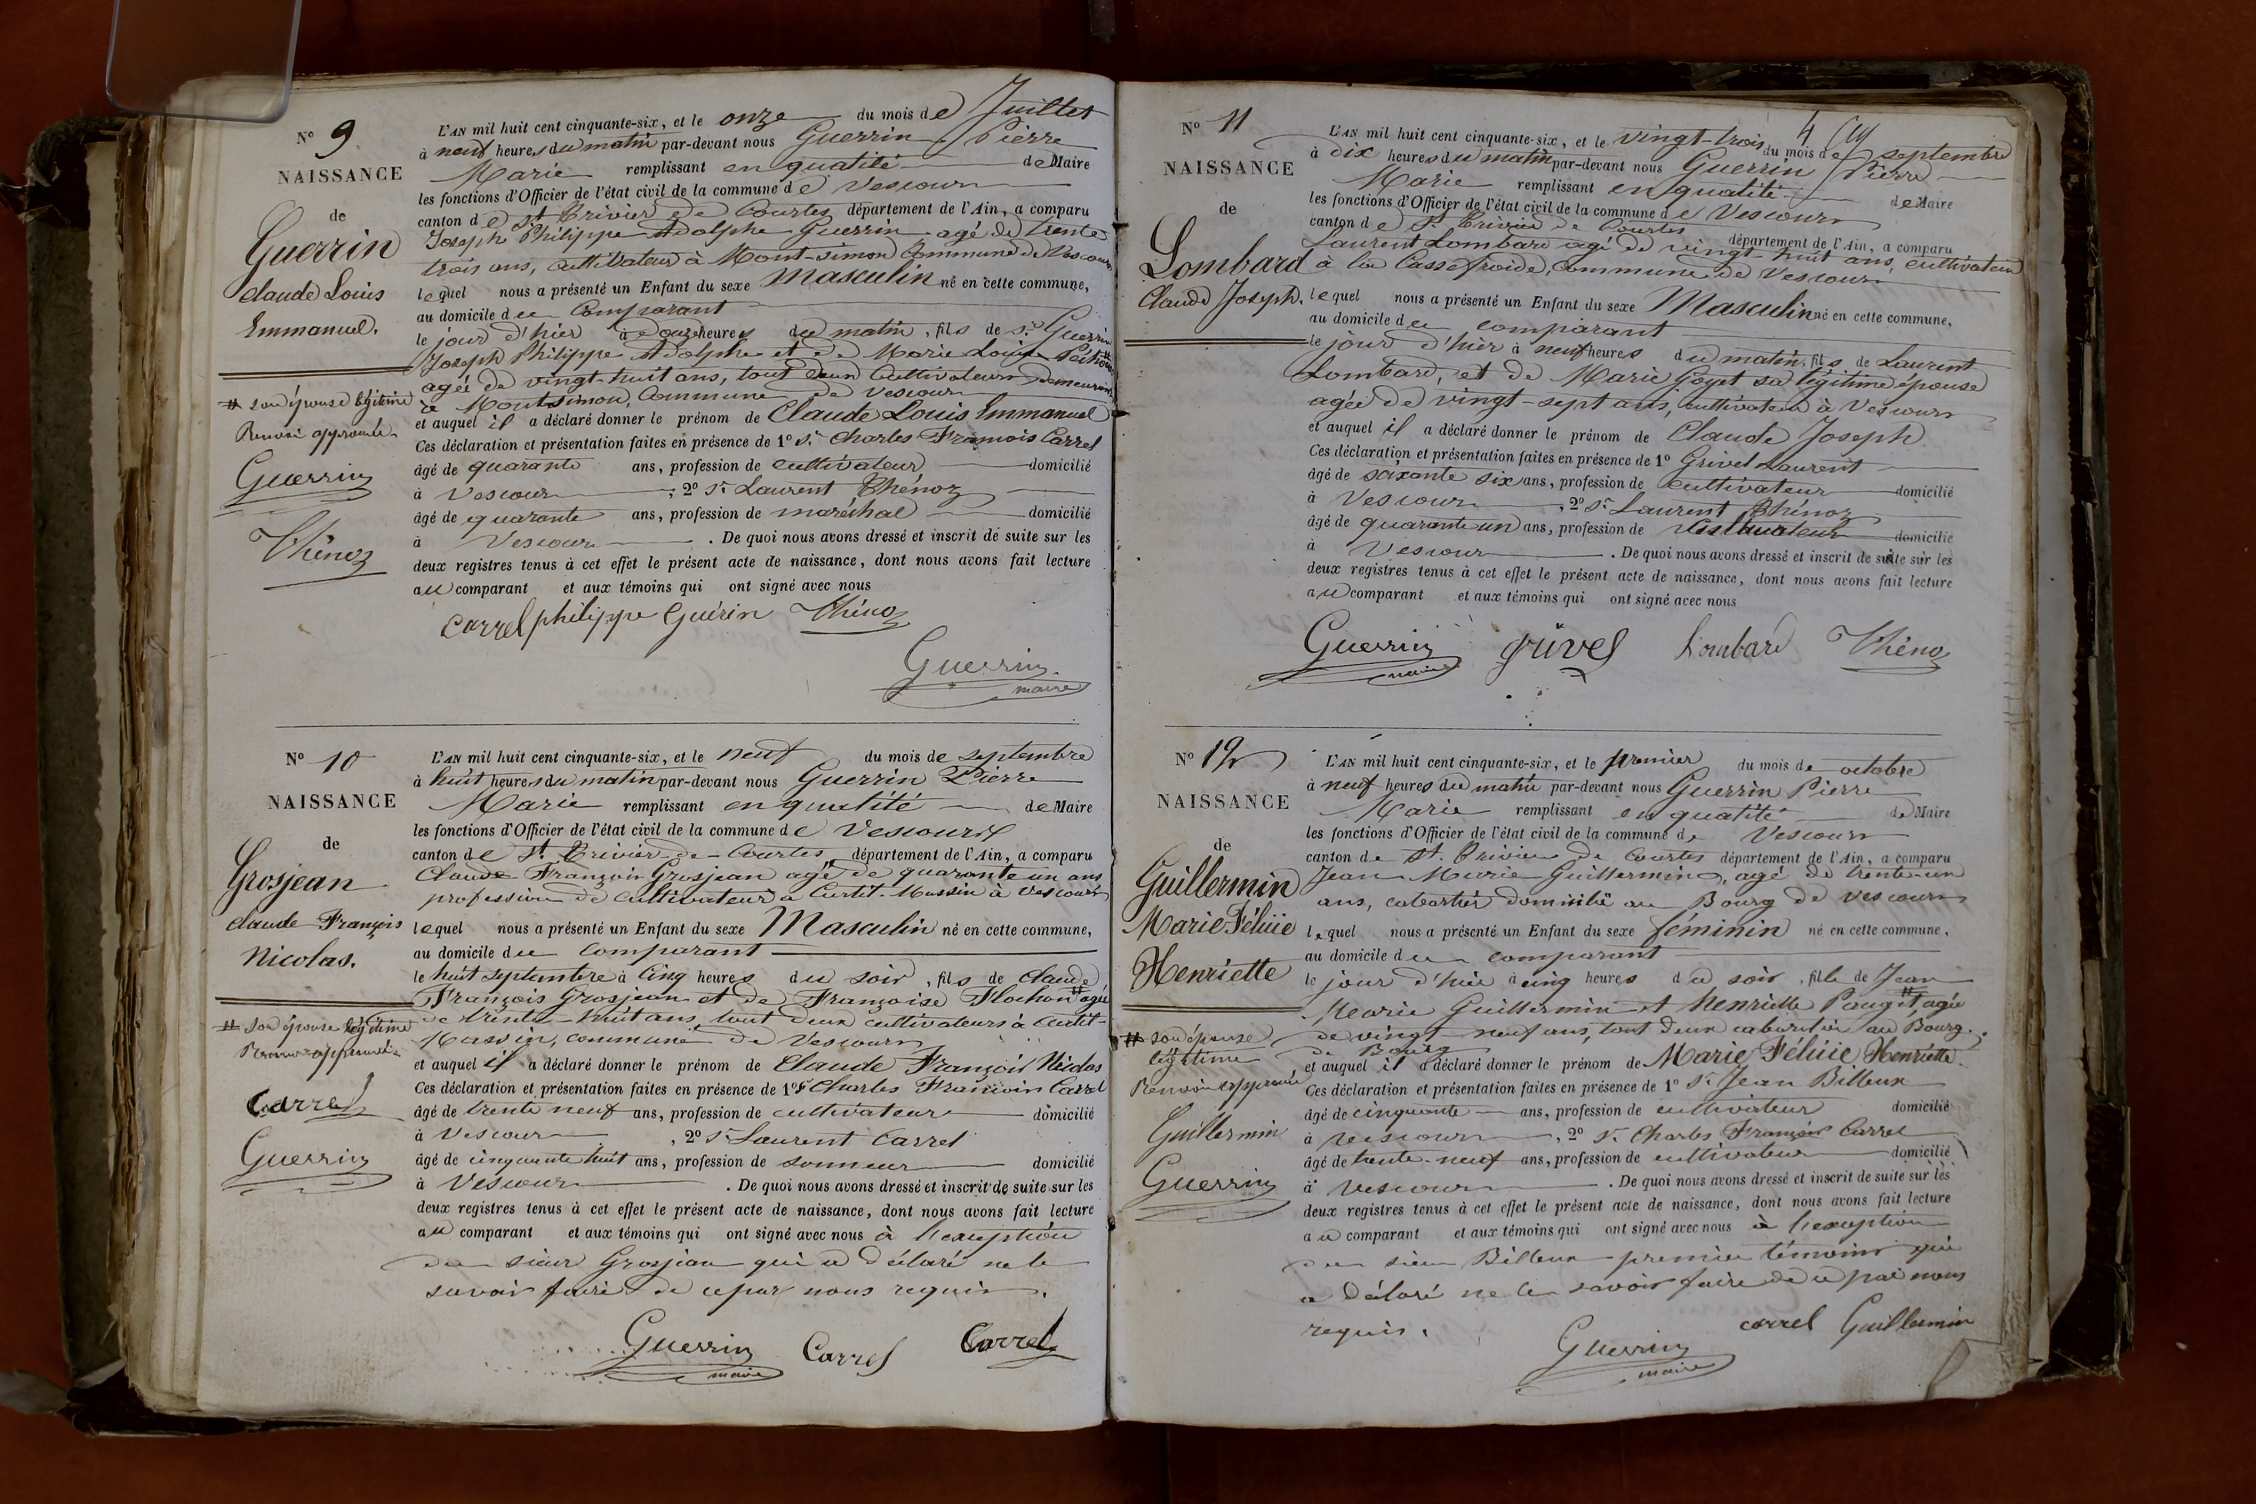 N° 9
NAISSANCE
de
Guerrin
Claude Louis
Emmanuel.
# son épouse légitime
Renvoi approuvé.
Guerrin
Thénoz
L'AN mil huit cent cinquante-six, et le onze du mois de Juillet
à neuf heures du matin par-devant nous Guerrin Pierre
Marie remplissant en qualité de Maire
les fonctions d'Officier de l'état civil de la commune de Vescours
canton de St Trivier de Courtes département de l'Ain, a comparu
Joseph Philippe Adolphe Guerrin agé de trente
trois ans, cultivateur à Mont-simon Commune de Vescours
lequel nous a présenté un Enfant du sexe Masculin né en cette commune,
au domicile du Comparant
le jour d'hier à onze heures du matin, fils de Sr Guerrin
Joseph Philippe Adolphe et de Marie Louise
agée de vingt-huit ans, tout deux Cultivateurs demeurant
à Montsimon, Commune de Vescours
et auquel il a déclaré donner le prénom de Claude Louis Emmanuel
Ces déclaration et présentation faites en présence de 1° Sr Charles François Carrel
âgé de quarante ans, profession de cultivateur domicilié
à Vescours, 2° Sr Laurent Thénoz
âgé de quarante ans, profession de maréchal domicilié
à Vescours. De quoi nous avons dressé et inscrit de suite sur les
deux registres tenus à cet effet le présent acte de naissance, dont nous avons fait lecture
au comparant et aux témoins qui ont signé avec nous
Carrel philippe Guérin Thénoz
Guerrin
maire
N° 10
NAISSANCE
de
Grosjean
Claude François
Nicolas.
# son épouse légitime
Renvoi approuvé.
Carrel
Guerrin
L'AN mil huit cent cinquante-six, et le neuf du mois de septembre
à huit heures du matin par-devant nous Guerrin Pierre
Marie remplissant en qualité de Maire
les fonctions d'Officier de l'état civil de la commune de Vescours
canton de St. Trivier-de-Courtes, département de l'Ain, a comparu
Claude François Grosjean agé de quarante un ans
profession de cultivateur à Curtit-Massin à Vescours
lequel nous a présenté un Enfant du sexe Masculin né en cette commune,
au domicile du comparant
le huit septembre à cinq heures du soir, fils de Claude
François Grosjean et de Françoise Flochon # agée
de trente-huit ans, tout deux cultivateurs à Curtit-
Massin, commune de Vescours
et auquel il a déclaré donner le prénom de Claude François Nicolas
Ces déclaration et présentation faites en présence de 1° Sr Charles François Carrel
âgé de trente neuf ans, profession de cultivateur domicilié
à Vescours, 2° Sr Laurent Carrel
âgé de cinquante huit ans, profession de sonneur domicilié
à Vescours. De quoi nous avons dressé et inscrit de suite sur les
deux registres tenus à cet effet le présent acte de naissance, dont nous avons fait lecture
au comparant et aux témoins qui ont signé avec nous à l'exception
du sieur Grosjean qui a déclaré ne le
savoir faire de ce par nous requis.
Guerrin Carrel Carrel
maire
4
N° 11
NAISSANCE
de
Lombard
Claude Joseph.
L'AN mil huit cent cinquante-six, et le vingt-trois du mois de septembre
à dix heures du matin par-devant nous Guerrin Pierre
Marie remplissant en qualité de Maire
les fonctions d'Officier de l'état civil de la commune de Vescours
canton de St. Trivier de Courtes département de l'Ain, a comparu
Laurent Lombard agé de vingt-huit ans, cultivateur
à la Cassefroide, Commune de Vescours
lequel nous a présenté un Enfant du sexe Masculin né en cette commune,
au domicile du comparant
le jour d'hier à neuf heures du matin, fils de Laurent
Lombard, et de Marie Goyet sa légitime épouse
agée de vingt-sept ans, cultivateur à Vescours
et auquel il a déclaré donner le prénom de Claude Joseph
Ces déclaration et présentation faites en présence de 1° Grivel Laurent
âgé de soixante six ans, profession de cultivateur domicilié
à Vescours, 2° Sr Laurent Thénoz
âgé de quarante un ans, profession de domicilié
à Vescours. De quoi nous avons dressé et inscrit de suite sur les
deux registres tenus à cet effet le présent acte de naissance, dont nous avons fait lecture
au comparant et aux témoins qui ont signé avec nous
Guerrin grivel Lombard Thénoz
maire
N° 12
NAISSANCE
de
Guillermin
Marie Félicie
Henriette
# son épouse
légitime
Renvoi approuvé
Guillermin
Guerrin
L'AN mil huit cent cinquante-six, et le premier du mois de octobre
à neuf heures du matin par-devant nous Guerrin Pierre
Marie remplissant en qualité de Maire
les fonctions d'Officier de l'état civil de la commune de Vescours
canton de St. Trivier de Courtes département de l'Ain, a comparu
Jean Marie Guillermin, agé de trente-un
ans, cabartier domicilié au Bourg de Vescours
lequel nous a présenté un Enfant du sexe féminin né en cette commune,
au domicile du comparant
le jour d'hier à cinq heures du soir, fille de Jean
Marie Guillermin et Henriette Pauget # agée
de vingt neuf ans, tout deux cabartier au Bourg
de Bourg
et auquel il a déclaré donner le prénom de Marie Félicie Henriette.
Ces déclaration et présentation faites en présence de 1° Sr Jean Billoux
âgé de cinquante ans, profession de cultivateur domicilié
à Vescours, 2° Sr. Charles François Carrel
âgé de trente-neuf ans, profession de cultivateur domicilié
à Vescours. De quoi nous avons dressé et inscrit de suite sur les
deux registres tenus à cet effet le présent acte de naissance, dont nous avons fait lecture
au comparant et aux témoins qui ont signé avec nous à l'exception
du sieur Billoux premier témoins qui
a déclaré ne le savoir faire de ce par nous
requis.
carrel Guillermin
Guerrin
maire